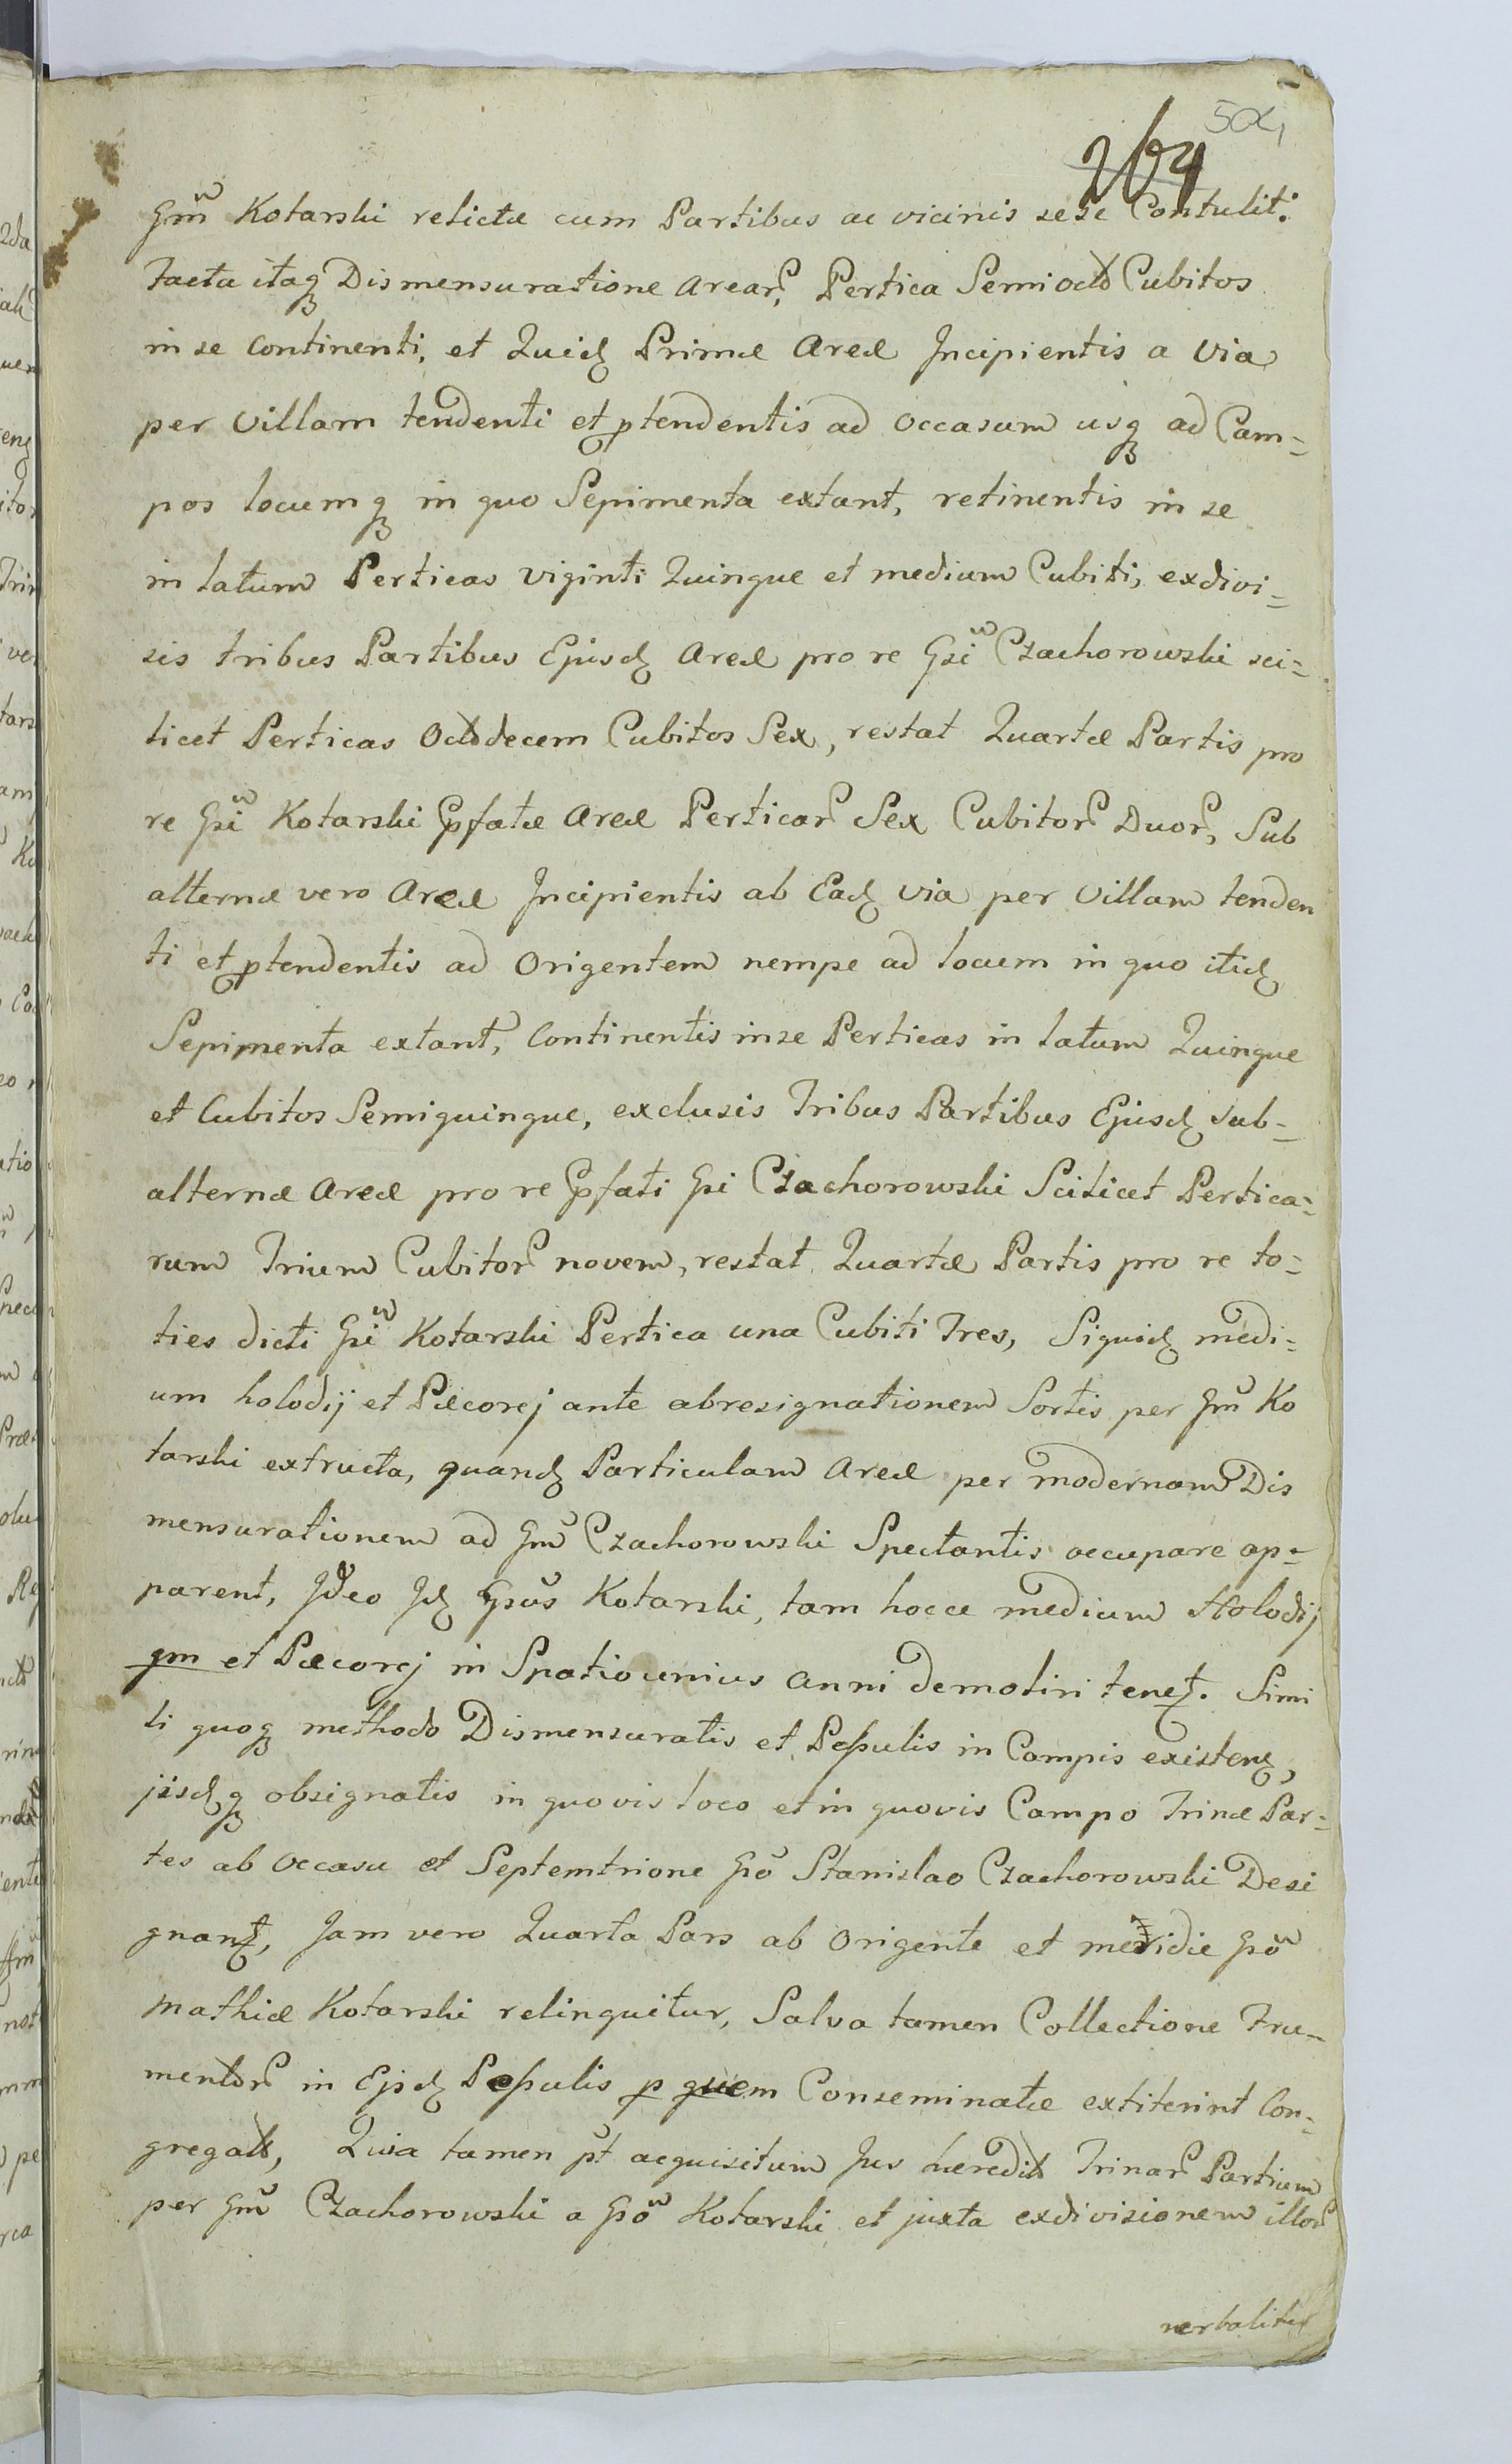 504
264
Gm̃ Kotarski relictæ cum Partibus ac vicinis sese Contulit.
Facta itaq Dismensuratione Arear, Pertica Semiocto Cubitos
in se Continenti, et Quid Primæ Areæ Incipientis a via
per Villam tendenti et ptendentis ad Occasum usq ad Cam=
pos locumq in quo Sepimenta extant, retinentis in se
in latum Perticas viginti Quinque et medium Cubiti, exdivi=
sis tribus Partibus Ejusd Areæ pro re Gsi Czachorowski sci=
licet Perticas Octodecem Cubitos Sex, restat Quartæ Partis pro
re Gsi Kotarski Pfatæ Areæ Perticar Sex Cubitor Duor, Sub
alternæ vero Areæ Incipientis ab Ead via per Villam tenden
ti et ptendentis ad Origentem nempe ad locum in quo itid
Sepimenta extant, Continentis in se Perticas in latum Quinque
et Cubitos Semiquinque, exclusis Tribus Partibus Ejusd sub=
alternæ Areæ pro re Pfati Gsi Czachorowski Scilicet Pertica=
rum Trium Cubitor novem, restat Quartæ Partis pro re to=
ties dicti Gsi Kotarski Pertica una Cubiti Tres, Siquid medi=
um holodij et Pæcorej ante abresignationem Sortis per Gm̃ Ko
tarski extructa, quand Particulam Areæ per modernam Dis
mensurationem ad Gm̃ Czachorowski Spectantis occupare ap=
parent, Ideo Id Gsus Kotarski, tam hocce medium Holodij
qm et Pæcorej in Spatio unius Anni demoliri tenet. Simi
li quoq methodo Dismensuratis et Pesulis in Campis existen,
jisdq obsignatis in quovis loco et in quovis Campo Trinæ Par=
tes ab Occasu et Septemtrione Gso Stanislao Czachorowski Desi
gnant, Jam vero Quarta Pars ab Origente et meridie Gso
Mathiæ Kotarski relinquitur, Salva tamen Collectione Fru=
mentor in Ejsd Pesulis p quem Conseminatæ extiterint Con=
gregato, Quia tamen pt acquisitum Jus heredit Trinar Partium
per Gm̃ Czachorowski a Gso Kotarski et juxta exdivisionem illor
verbaliter